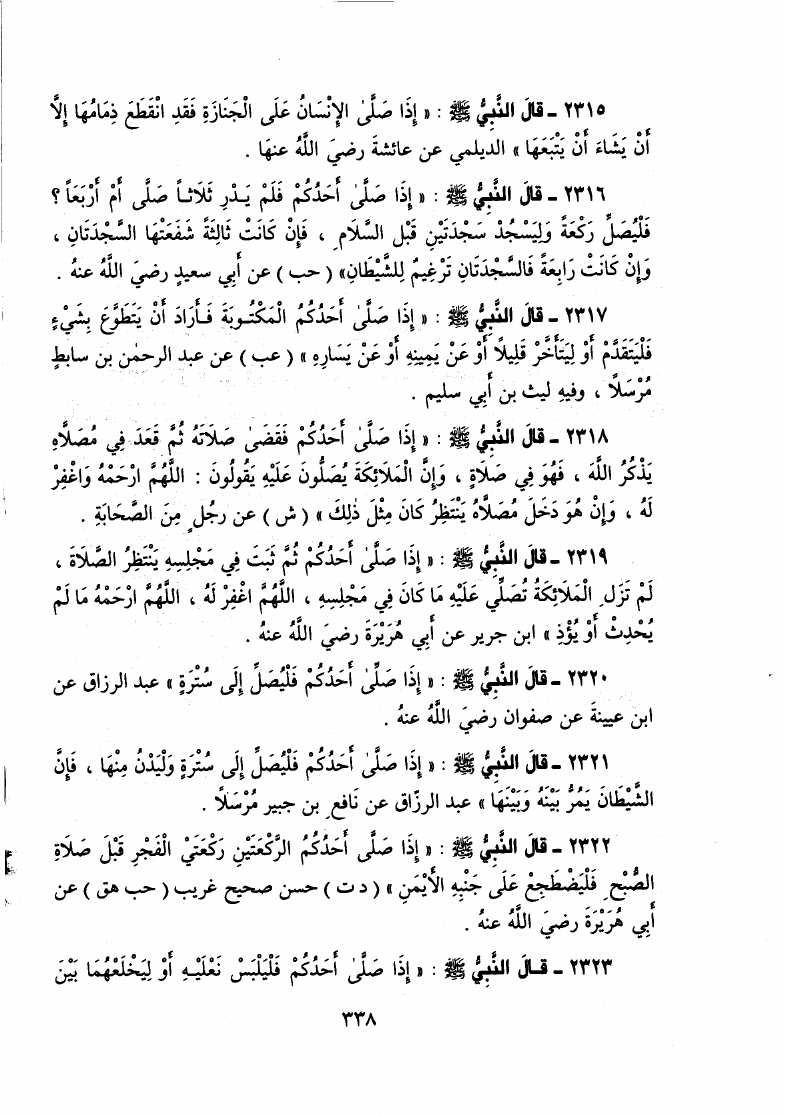 ٢٣١٥ ـ قالَ النَّبِيُّ ﷺ : « إِذَا صَلَّىٰ الإِنْسَانُ عَلَى الْجَنَازَةِ فَقَدِ انْقَطَعَ ذِمَامُهَا إِلَّا
أَنْ يَشَاءَ أَنْ يَتْبَعَهَا » الديلمي عن عائشةَ رضيَ اللَّهُ عنهَا .
٢٣١٦ ـ قالَ النَّبِيُّ ﷺ : « إِذَا صَلَّىٰ أَحَدُكُمْ فَلَمْ يَدْرِ ثَلَاثاً صَلَّى أَمْ أَرْبَعَاً ؟
فَلْيُصَلِّ رَكْعَةً وَلْيَسْجُدْ سَجْدَتَيْنِ قَبْلَ السَّلَامِ ، فَإِنْ كَانَتْ ثَالِثَةً شَفَعَتْهَا السَّجْدَتَانِ ،
وَإِنْ كَانَتْ رَابِعَةً فَالسَّجْدَتَانِ تَرْغِيمٌ لِلشَّيْطَانِ» ( حب ) عن أبي سعيدٍ رضيَ اللَّهُ عنهُ .
٢٣١٧ ـ قالَ النَّبِيُّ ﷺ : « إِذَا صَلَّىٰ أَحَدُكُمُ الْمَكْتُوبَةَ فَأَرَادَ أَنْ يَتَطَوَّعَ بِشَيْءٍ
فَلْيَتَقَدَّمْ أَوْ لِيَتَأَخَّرْ قَلِيلاً أَوْ عَنْ يَمِينِهِ أَوْ عَنْ يَسَارِهِ » ( عب ) عن عبد الرحمٰن بن سابطٍ
مُرْسَلاً ، وفيهِ ليث بن أبي سليم .
٢٣١٨ ـ قالَ النَّبِيُّ ﷺ : « إِذَا صَلَّىٰ أَحَدُكُمْ فَقَضَىٰ صَلَاتَهُ ثُمَّ قَعَدَ فِي مُصَلَّاهِ
يَذْكُرُ اللَّهَ ، فَهُوَ فِي صَلَاةٍ ، وَإِنَّ الْمَلَائِكَةَ يُصَلُّونَ عَلَيْهِ يَقُولُونَ : اللَّهُمَّ ارْحَمْهُ وَاغْفِرْ
لَهُ ، وَإِنْ هُوَ دَخَلَ مُصَلَّاهُ يَنْتَظِرُ كَانَ مِثْلَ ذٰلِكَ » ( ش ) عن رجُلٍ مِنَ الصَّحَابَةِ .
٢٣١٩ ـ قالَ النَّبِيُّ ﷺ : « إِذَا صَلَّىٰ أَحَدُكُمْ ثُمَّ ثَبَتَ فِي مَجْلِسِهِ يَنْتَظِرُ الصَّلَاةَ ،
لَمْ تَزَلِ الْمَلَائِكَةُ تُصَلِّي عَلَيْهِ مَا كَانَ فِي مَجْلِسِهِ ، اللَّهُمَّ اغْفِرْ لَهُ ، اللَّهُمَّ ارْحَمْهُ مَا لَمْ
يُحْدِثْ أَوْ يُؤْذِ » ابن جرير عن أَبِي هُرَيْرَةَ رضيَ اللَّهُ عنهُ .
٢٣٢٠ ـ قالَ النَّبِيُّ ﷺ : « إِذَا صَلَّىٰ أَحَدُكُمْ فَلْيُصَلِّ إِلَى سُتْرَةٍ » عبد الرزاق عن
ابن عيينةَ عن صفوان رضيَ اللَّهُ عنهُ .
٢٣٢١ ـ قالَ النَّبِيُّ ﷺ : « إِذَا صَلَّىٰ أَحَدُكُمْ فَلْيُصَلِّ إِلَى سُتْرَةٍ وَلْيَدْنُ مِنْهَا ، فَإِنَّ
الشَّيْطَانَ يَمُرُّ بَيْنَهُ وَبَيْنَهَا » عبد الرزّاق عن نَافعِ بن جبير مُرْسَلاً .
٢٣٢٢ ـ قالَ النَّبِيُّ ﷺ : « إِذَا صَلَّىٰ أَحَدُكُمُ الرَّكْعَتَيْنِ رَكْعَتَيْ الْفَجْرِ قَبْلَ صَلَاةِ
الصُّبْحِ فَلْيَضْطَجِعْ عَلَى جَنْبِهِ الأَيْمَنِ » ( د ت ) حسن صحيح غريب ( حب هق ) عن
أَبِي هُرَيْرَةَ رضيَ اللَّهُ عنهُ .
٢٣٢٣ ـ قالَ النَّبِيُّ ﷺ : « إِذَا صَلَّىٰ أَحَدُكُمْ فَلْيَلْبَسْ نَعْلَيْهِ أَوْ لِيَخْلَعْهُمَا بَيْنَ
٣٣٨